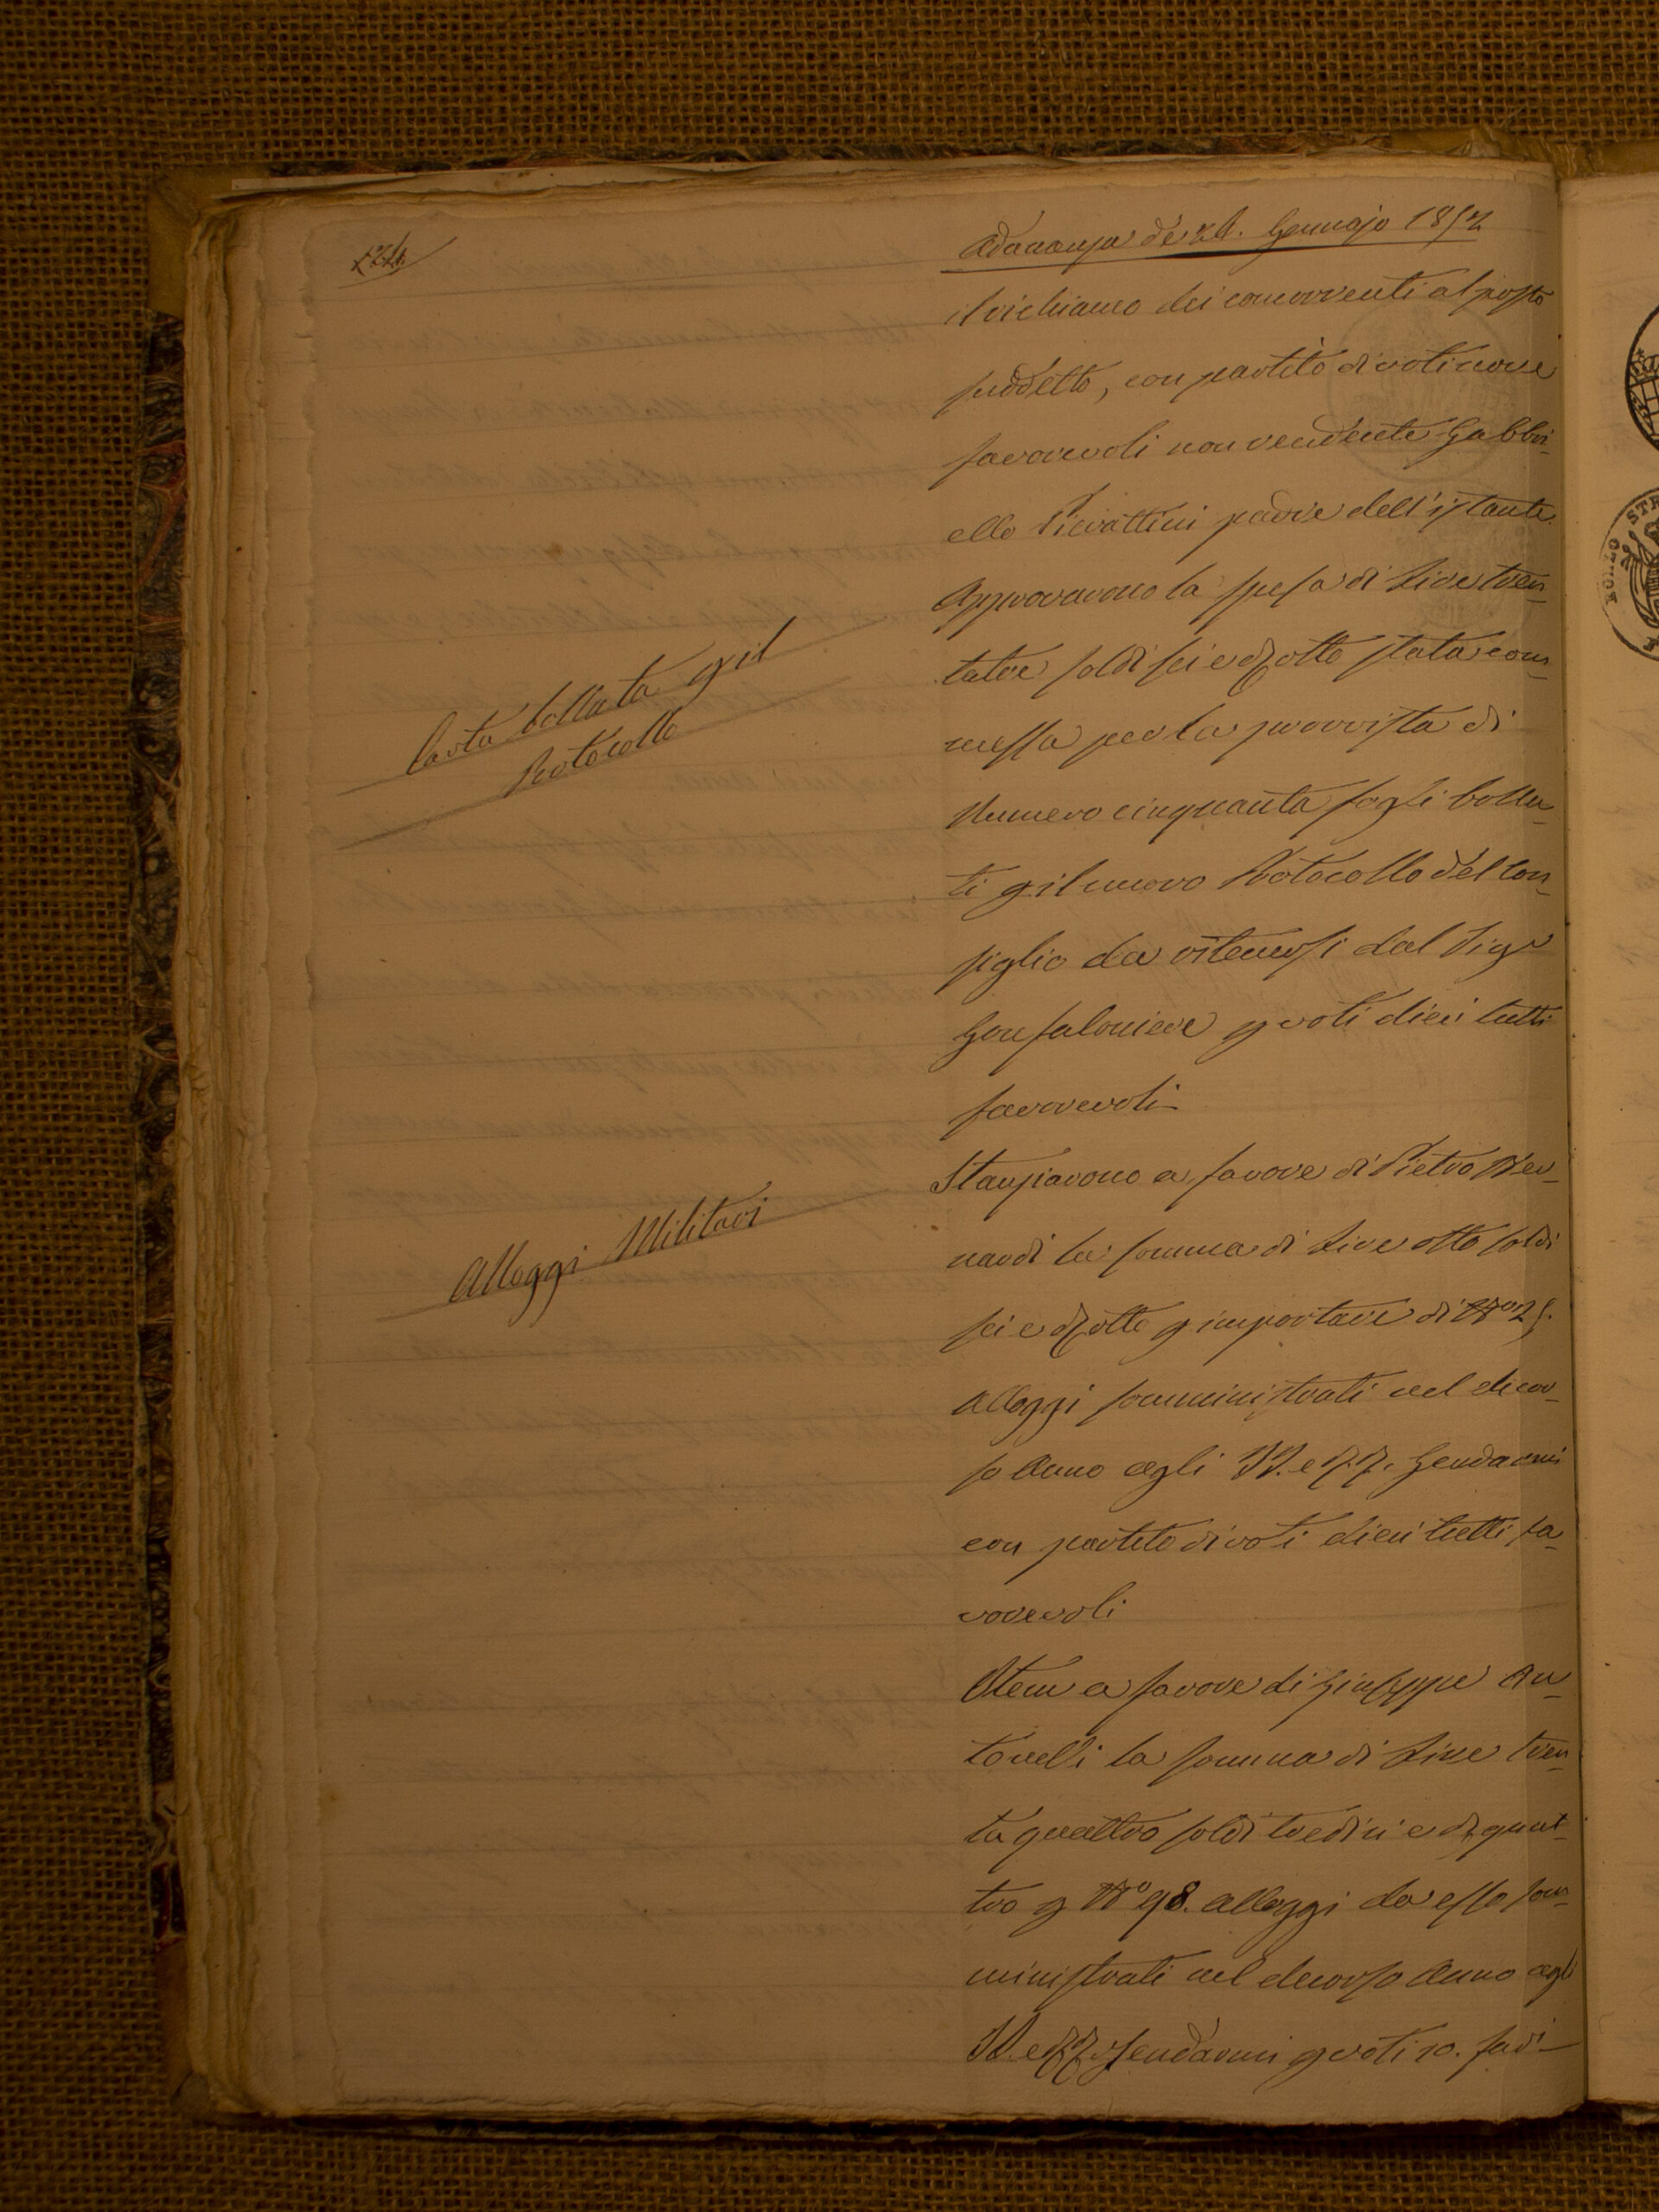 Adunanza de 24. Gennajo 1852
il richiamo dei concorrenti al posto
suddetto, con partito di voti nove
favorevoli non rendente Gabbri-
ello Pierattini padre dell'istante
Approvarono la spesa di Lire tren-
tatre soldi sei e d otto stata com-
messa per la provvista di
Numero cinquanta fogli bolla-
ti p il nuovo Protocollo del Con-
siglio da ritenersi dal Sigr
Gonfaloniere p voti dieci tutti
favorevoli
Carta bollata p il
Protocollo
Stanziarono a favore di Pietro Ber-
nardi la somma di Lire otto soldi
sei e d otto p importare di No 25.
alloggi somministrati nel decor-
so Anno agli II. e RR. Gendarmi
con partito di voti dieci tutti fa-
vorevoli
Alloggi Militari
Item a favore di Giuseppe An-
tonelli la somma di Lire tren-
ta quattro soldi tredici e d quat-
tro p No 98. alloggi da esso som-
ministrati nel decorso Anno agli
II. e RR. Gendarmi p voti 10. favi-